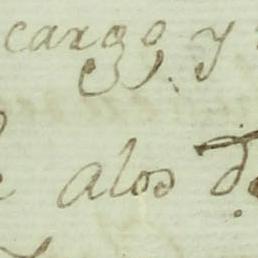 cargo, y
alos